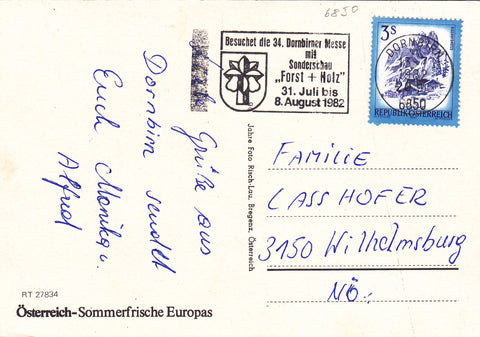 6850
Besuchet die 34. Dornbirner Messe
mit
Sonderschau
„Forst + Holz"
31. Juli bis
8. August 1982
3 S
DORNBIRN
6850
REPUBLIK ÖSTERREICH
Grüße aus
Dornbirn sendet
Euch Monika u.
Alfred
Jahre Foto Risch-Lau, Bregenz, Österreich
FAMILIE
LASSHOFER
3150 Wilhelmsburg
NÖ.
RT 27834
Österreich-Sommerfrische Europas